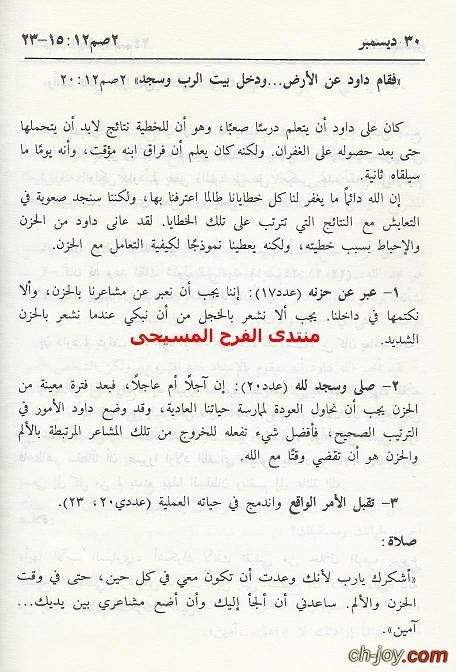 ٣٠ ديسمبر ٢صم١٢: ١٥–٢٣
«فقام داود عن الأرض...ودخل بيت الرب وسجد» ٢صم١٢: ٢٠
كان على داود أن يتعلم درسًا صعبًا، وهو أن للخطية نتائج لابد أن يتحملها
حتى بعد حصوله على الغفران. ولكنه كان يعلم أن فراق ابنه مؤقت، وأنه يومًا ما
سيلقاه ثانية.
إن الله دائمًا ما يغفر لنا كل خطايانا طالما اعترفنا بها، ولكننا سنجد صعوبة في
التعايش مع النتائج التي تترتب على تلك الخطايا. لقد عانى داود من الحزن
والإحباط بسبب خطيته، ولكنه يعطينا نموذجًا لكيفية التعامل مع الحزن.
١– عبر عن حزنه (عدد١٧): إننا يجب أن نعبر عن مشاعرنا بالحزن، وألا
نكتمها في داخلنا. يجب ألا نشعر بالخجل من أن نبكي عندما نشعر بالحزن
الشديد.
منتدى الفرح المسيحى
٢– صلى وسجد لله (عدد٢٠): إن آجلًا أم عاجلًا، فبعد فترة معينة من
الحزن يجب أن نحاول العودة لممارسة حياتنا العادية، وقد وضع داود الأمور في
الترتيب الصحيح، فأفضل شيء تفعله للخروج من تلك المشاعر المرتبطة بالألم
والحزن هو أن تقضي وقتًا مع الله.
٣– تقبل الأمر الواقع واندمج في حياته العملية (عددي٢٠، ٢٣).
صلاة:
«أشكرك يارب لأنك وعدت أن تكون معي في كل حين، حتى في وقت
الحزن والألم. ساعدني أن ألجأ إليك وأن أضع مشاعري بين يديك...
آمين».
ch-joy.com